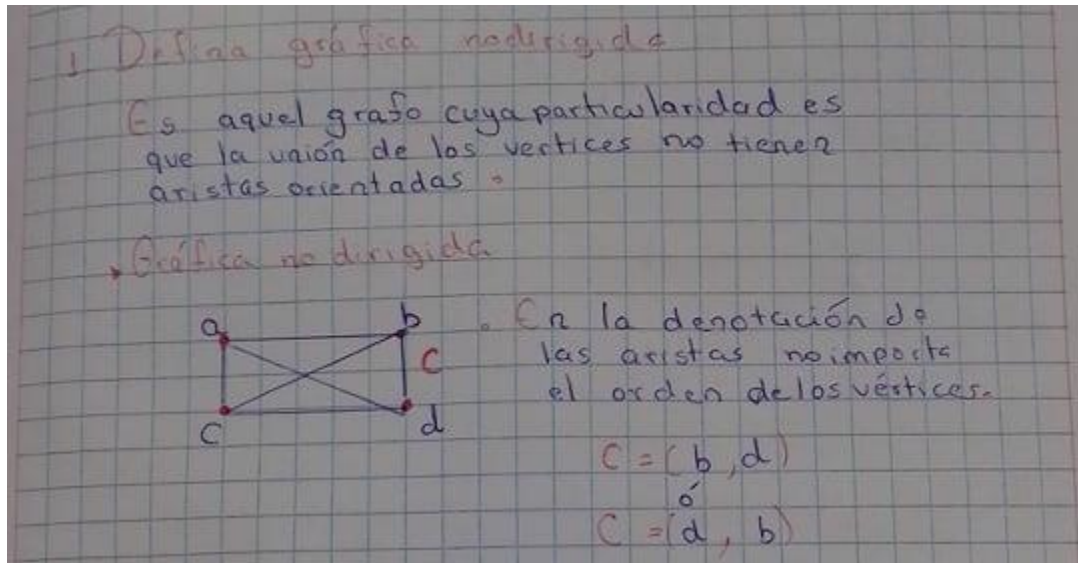 1 Defina gráfica nodirigida
Es aquel grafo cuya particularidad es
que la unión de los vertices no tienen
aristas orientadas.
Gráfica no dirigida
a
b
C
c
d
En la denotación de
las aristas no importa
el orden de los vértices.
C = (b, d)
ó
C = (d, b)